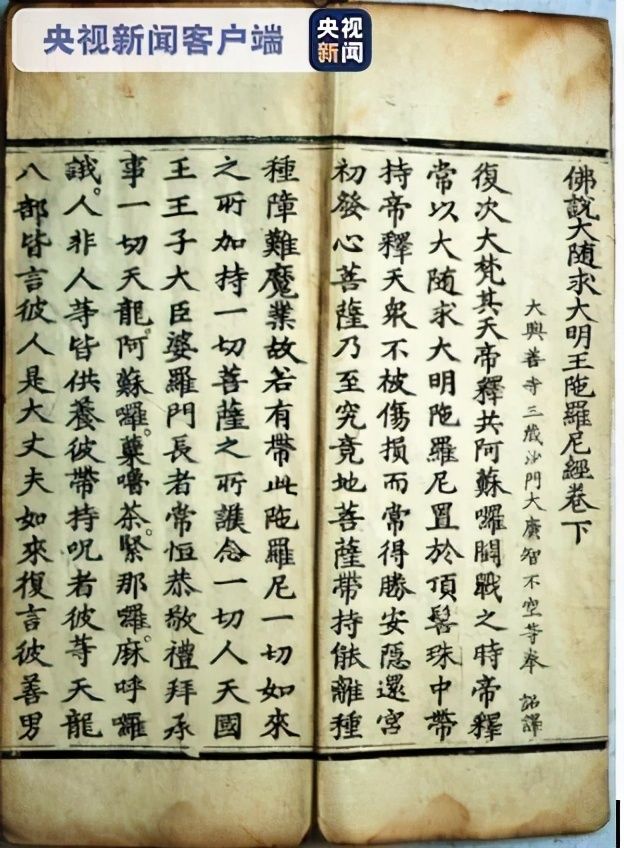 央视新闻客户端
央视
新闻
佛說大随求大明王陁羅尼經卷下
大興善寺三藏沙門大廣智不空等奉 詔譯
復次大梵其天帝釋共阿蘇囉鬪戰之時帝釋
常以大随求大明陁羅尼置於頂髻珠中帶
持帝釋天衆不被傷損而常得勝安隱還宮
初發心菩薩乃至究竟地菩薩帶持能離種
種障難魔業故若有帶此陁羅尼一切如來
之所加持一切菩薩之所護念一切人天國
王王子大臣婆羅門長者常恒恭敬禮拜承
事一切天龍。阿蘇囉。蘗嚕荼。緊那囉。麻呼囉
誐。人非人等皆供養彼帶持呪者彼等天龍
八部皆言彼人是大丈夫如來復言彼善男